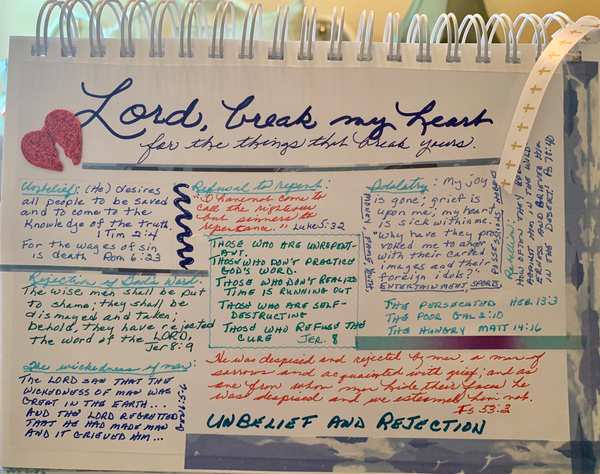 Lord, break my heart
for the things that break yours.
Unbelief: (He) desires
all people to be saved
and to come to the
Knowledge of the truth.
1 Tim 2:4
For the wages of sin
is death Rom 6:23
Rejection of God's Word:
The wise men shall be put
to shame; they shall be
dismayed and taken;
behold, they have rejected
the word of the LORD,
Jer 8:9
The wickedness of man:
The LORD saw that the
wickedness of man was
great in the earth...
and the LORD regretted
that he had made man
and it grieved him...
Gen 6:5-6
Refusal to repent:
"I have not come to
call the righteous
but sinners to
repentance." Luke 5:32
Those who are unrepent-
ant.
Those who don't practice
God's word.
Those who don't realize
time is running out
Those who are self-
destructing
Those who refuse the
cure Jer. 8
He was despised and rejected by men, a man of
sorrows and acquainted with grief; and as
one from whom men hide their faces he
was despised and we esteemed him not.
Is 53:3
Unbelief and Rejection
Idolatry: My joy
is gone; grief is
upon me; my heart
is sick within me!
"Why have they pro-
voked me to anger
with their carved
images and their
foreign idols?"
Entertainment, sports,
possessions, heroes
The persecuted Heb 13:3
The poor Gal 2:10
The hungry Matt 14:16
Rebellion:
How often they rebelled
against him in the wild-
erness and grieved him
in the desert! Ps 78:40